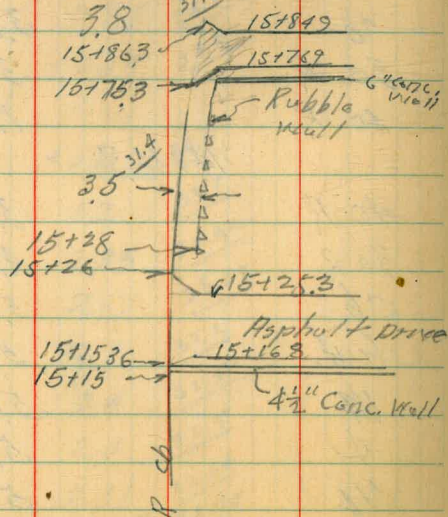 3.8
15+849
15+863
15+769
15+753
6" Conc. Wall
Rubble
Wall
31.4
3.5
15+28
15+26
15+25.3
Asphalt Drive
15+16.8
15+1536
15+15
4½" Conc. Wall